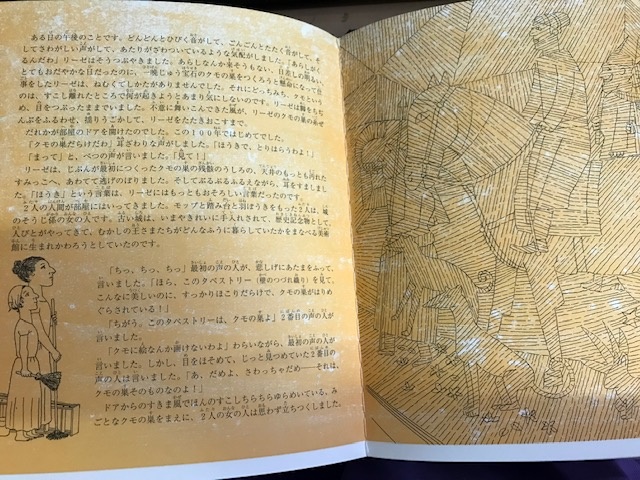 ある日の午後のことです。どんどんとひびく音がして、ごんごんとたたく音がして、そ
してさわがしい声がして、あたりがざわついているような気配がしました。「あらしがく
るんだわ」リーゼはそうつぶやきました。あらしなんか来そうもない、日差しの明るい
とてもおだやかな日だったのに、一晩じゅう宝石のクモの巣をつくろうと懸命になって仕
事をしたリーゼは、ねむくてしかたがありませんでした。それにどっちみち、クモという
のは、すこし離れたところで何が起きようとあまり気にしないのです。リーゼは脚をちぢ
め、目をつぶったままでいました。不意に舞いこんできた風が、リーゼのクモの巣の糸ぜ
んぶをふるわせ、揺りうごかして、リーゼをたたきおこすまで。
だれかが部屋のドアを開けたのでした。この１００年ではじめてでした。
「クモの巣だらけだわ」耳ざわりな声がしました。「ほうきで、とりはらうわよ！」
「まって」と、べつの声が言いました。「見て！」
リーゼは、じぶんが最初につくったクモの巣の残骸のうしろの、天井のもっとも汚れた
すみっこへ、あわてて逃げのぼりました。そしてぶるぶるふるえながら、耳をすましまし
た。「ほうき」という言葉は、リーゼにはもっともおそろしい言葉だったのです。
２人の人間が部屋にはいってきました。モップと踏み台と羽ぼうきをもった２人は、城
のそうじ係の女の人です。古い城は、いまやきれいに手入れされて、歴史記念物として、
人びとがやってきて、むかしの王さまたちがどんなふうに暮らしていたかをまなべる美術
館に生まれかわろうとしていたのです。
「ちっ、ちっ、ちっ」最初の声の人が、悲しげにあたまをふって、
言いました。「ほら、このタペストリー（壁のつづれ織り）を見て。
こんなに美しいのに、すっかりほこりだらけで、クモの巣がはりめ
ぐらされている！」
「ちがう。このタペストリーは、クモの巣よ」２番目の声の人が
言いました。
「クモに絵なんか描けないわよ」わらいながら、最初の声の人が
言いました。しかし、目をほそめて、じっと見つめていた２番目の
声の人は言いました。「あ、だめよ、さわっちゃだめ――それは、
クモの巣そのものなのよ！」
ドアからのすきま風でほんのすこしちらちらゆらめいている、み
ごとなクモの巣をまえに、２人の女の人は思わず立ちつくしました。